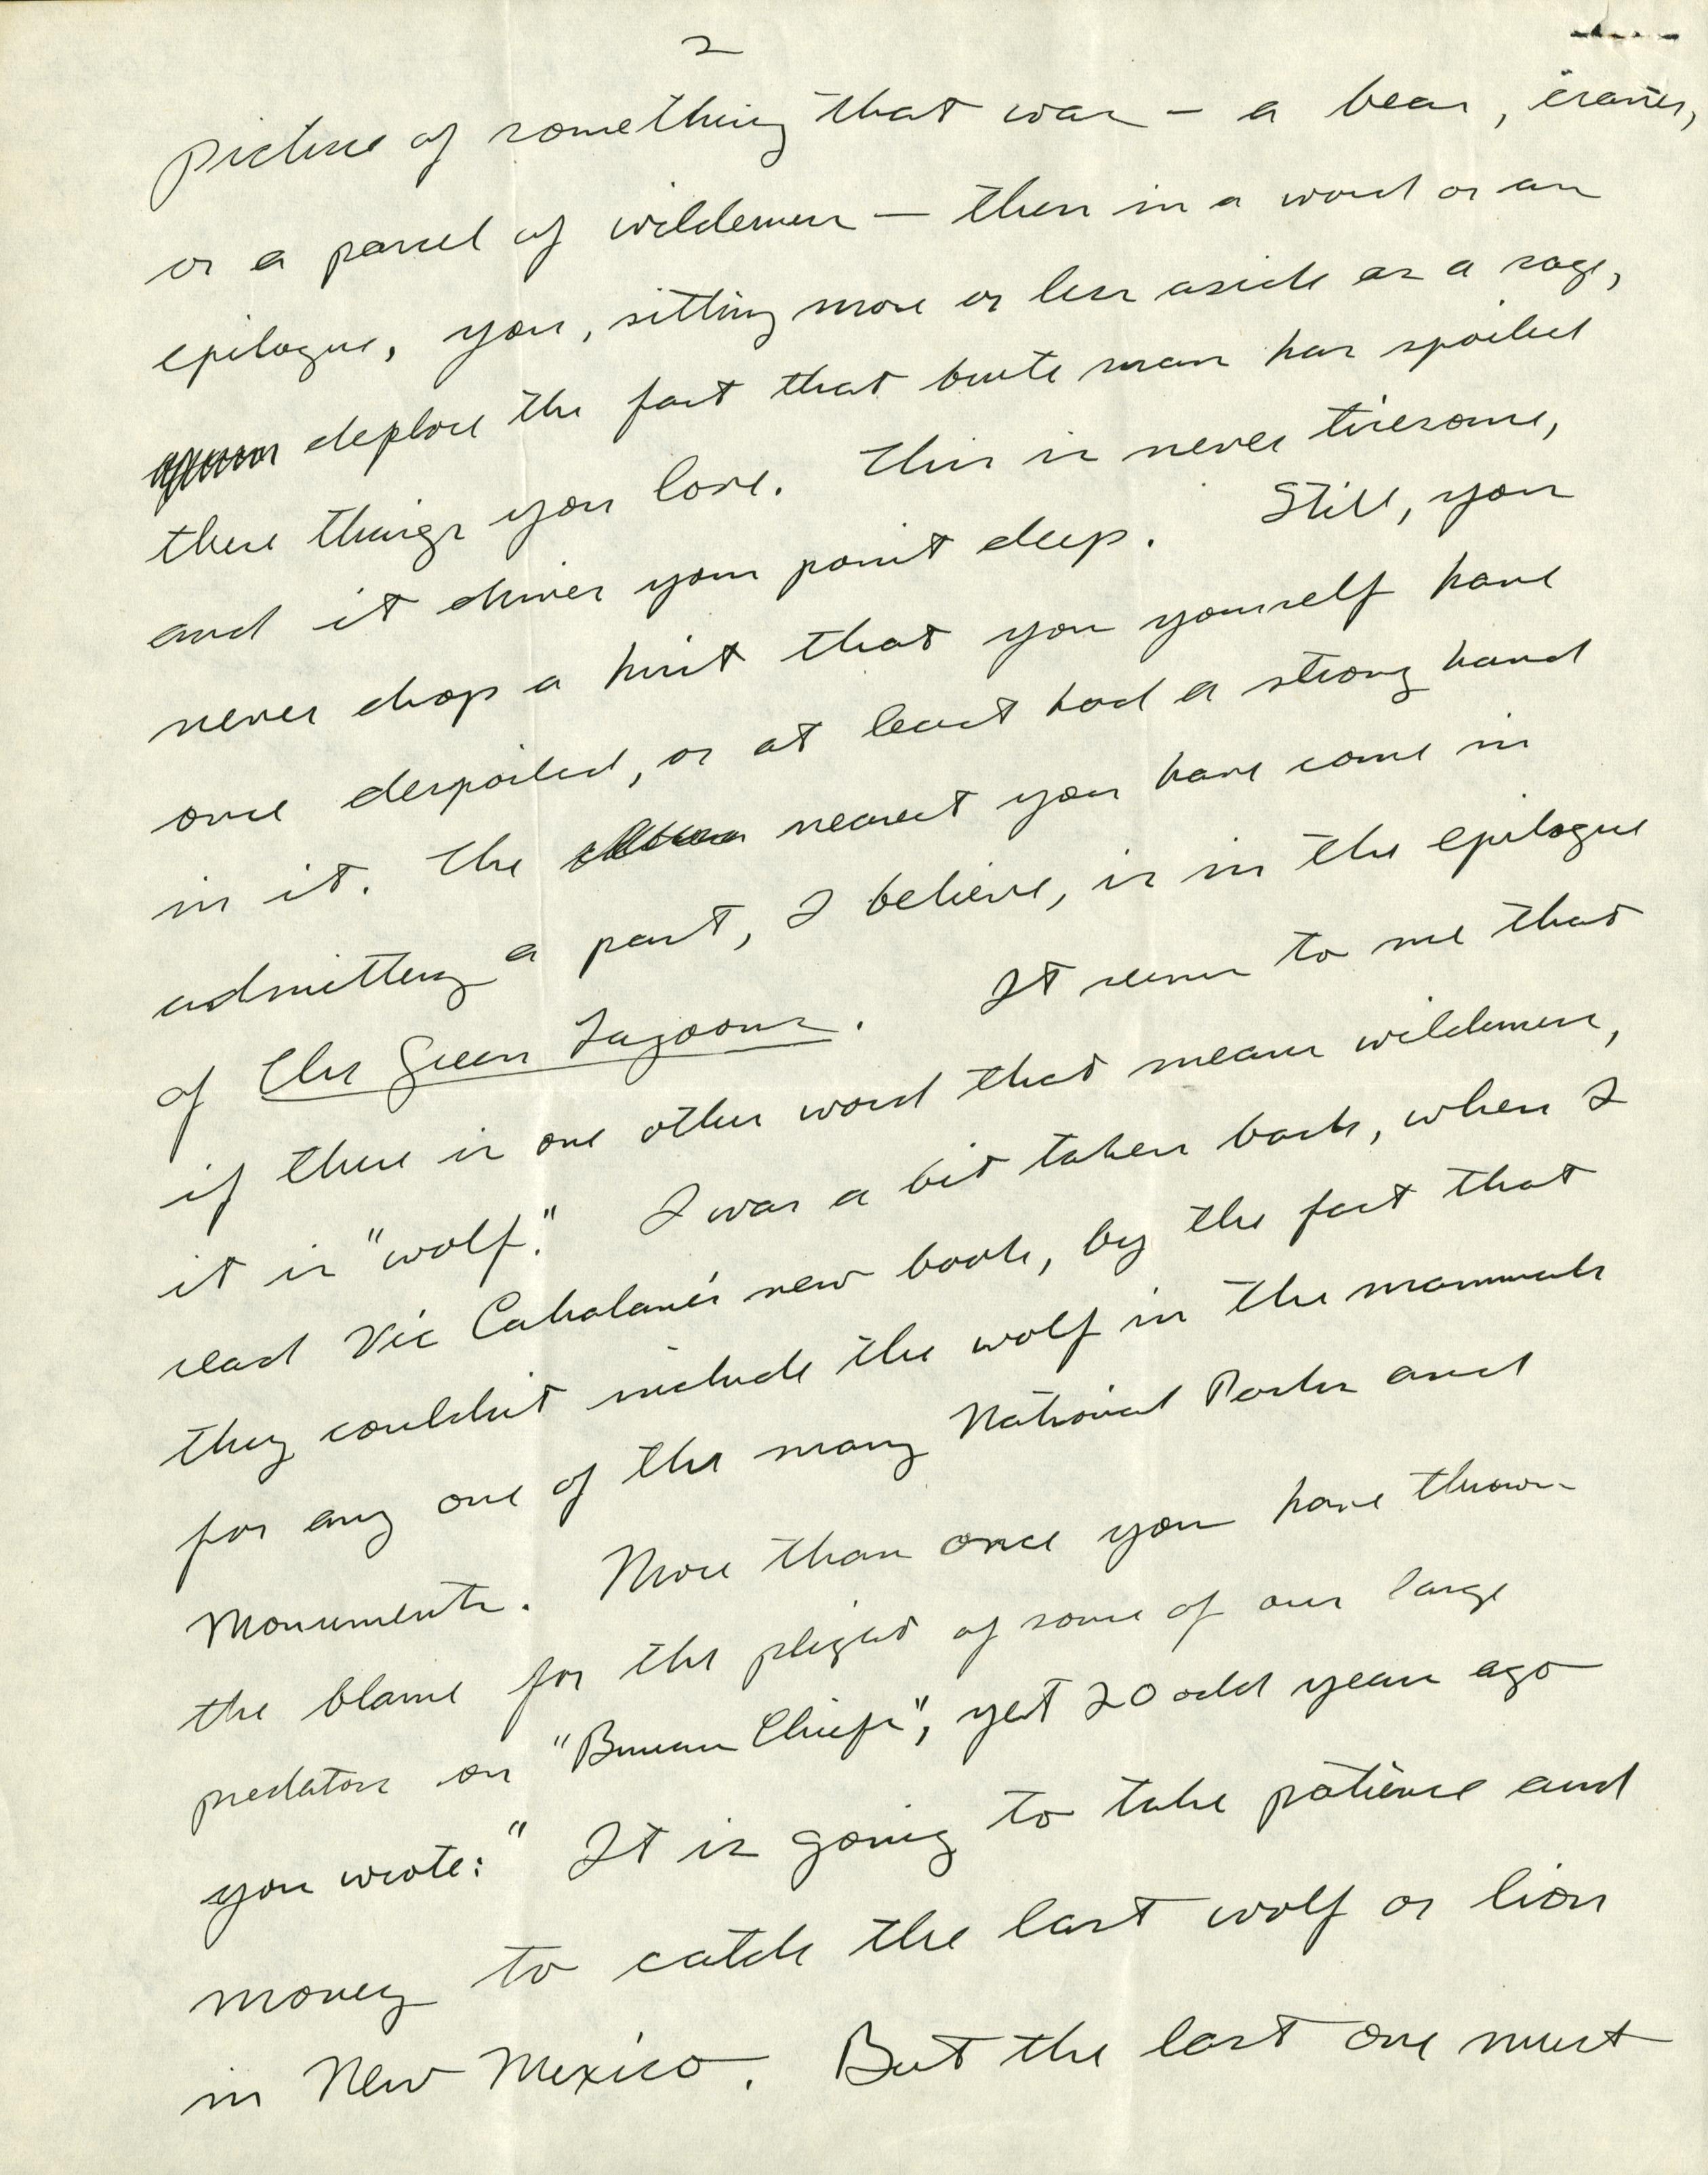 2
picture of something that was – a bear, cranes,
or a parcel of wilderness – then in a word or an
epilogue, you, sitting more or less aside as a sage,
deplore the fact that brute man has spoiled
these things you love. This is never tiresome,
and it drives your point deep. Still, you
never drop a hint that you yourself have
once despoiled, or at least had a strong hand
in it. The nearest you have come in
admitting a part, I believe, is in the epilogue
of The Green Lagoons. It seems to me that
if there is one other word that means wilderness,
it is "wolf." I was a bit taken back, when I
read Vic Cahalane's new book, by the fact that
they couldn't include the wolf in the mammals
for any one of the many National Parks and
Monuments. More than once you have thrown
the blame for the plight of some of our large
predators on "Bureau Chiefs", yet 20 odd years ago
you wrote: "It is going to take patience and
money to catch the last wolf or lion
in New Mexico. But the last one must